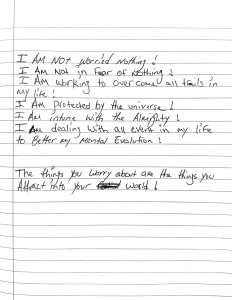 I AM NOT worried Nothing !
I AM Not in Fear of Nothing !
I AM working to over come all trails in
my life !
I AM protected by the universe !
I AM intune with the Almighty !
I AM dealing with all event in my life
to Better my Mental Evolution !
The things you worry about are the things you
Attract into your world !